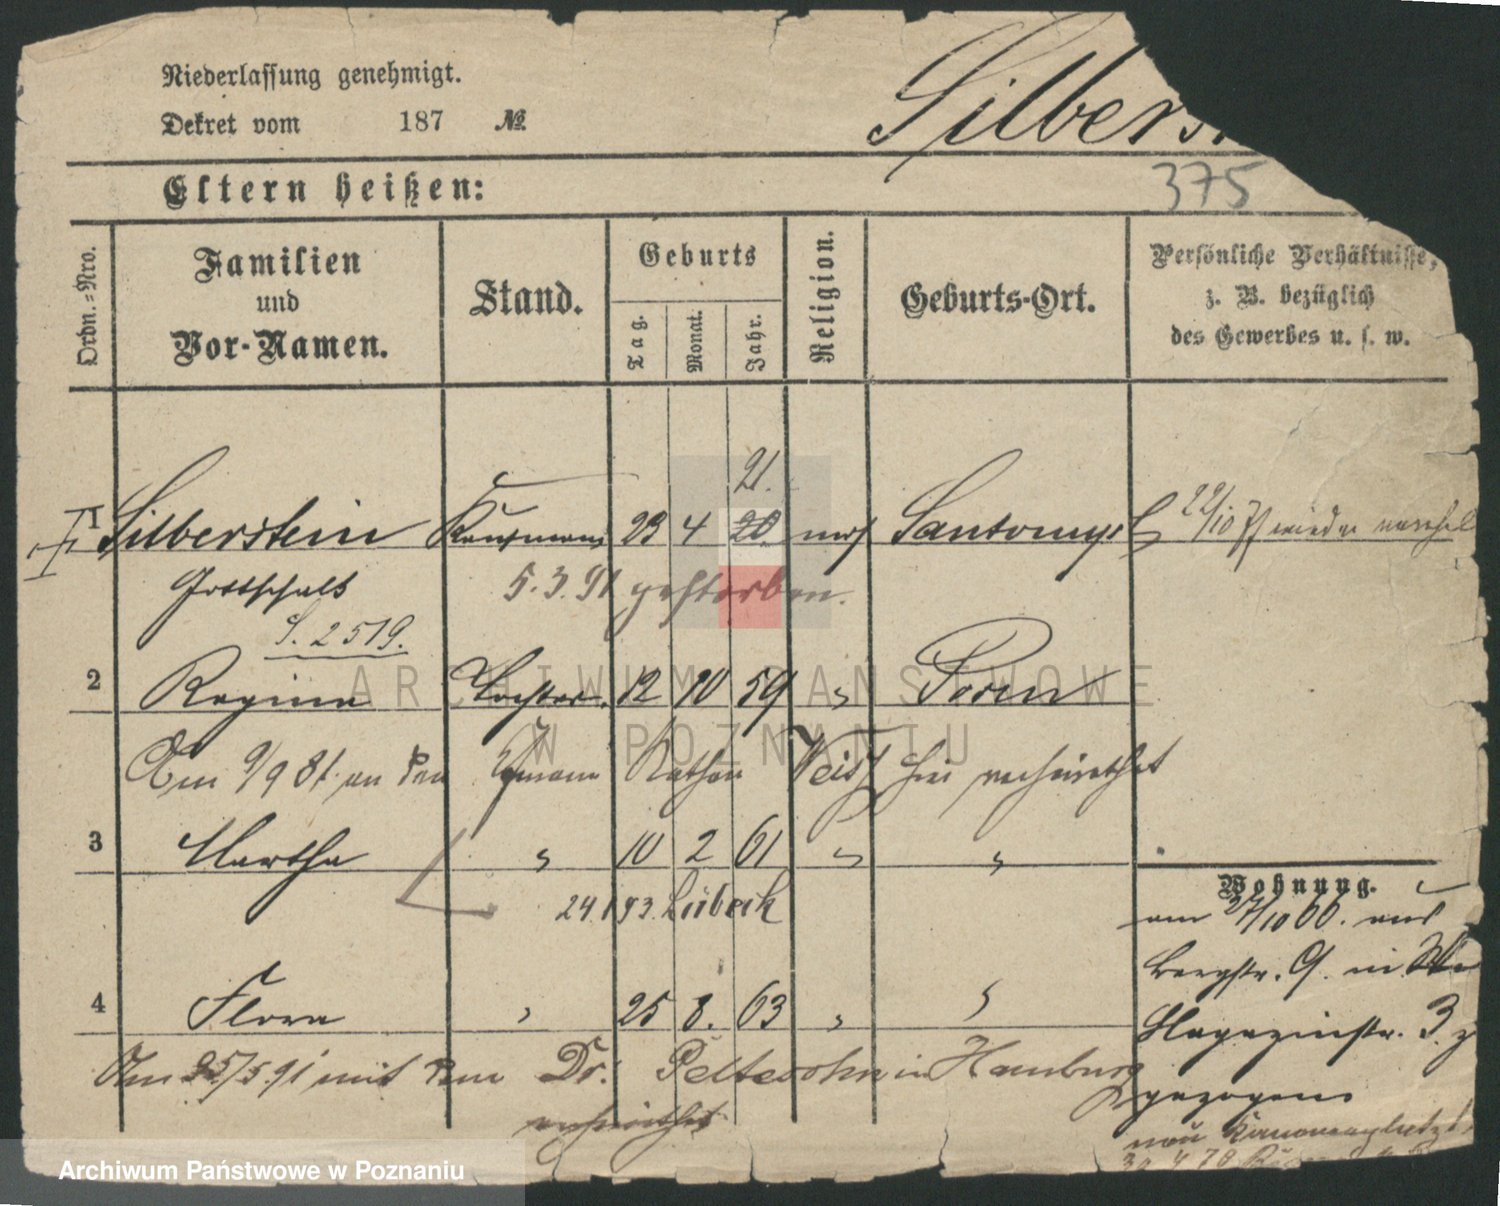 Niederlassung genehmigt.
Dekret vom 187 №
Silbers
375
Eltern heißen:
Ordn.-Nro.
Familien
und
Vor-Namen.
Stand.
Geburts
Tag.
Monat.
Jahr.
Religion.
Geburts-Ort.
Persönliche Verhältnisse,
z. B. bezüglich
des Gewerbes u. s. w.
21.
1 Silberstein Kaufmann 23 4 20 mos Santomysl 22/10 wieder
Gottschalk 5.3.91 gestorben.
S. 2519.
2 Regina Tochter 12 10 59 " Posen
Am 9/9 81 an den Kfmann Nathan Weiss hier verheirathet
3 Martha " 10 2 61 " "
24.1.93. Lübeck
4 Flora " 25 8. 63 " "
Am 25/5.91 mit dem Dr. Peltesohn in Hamburg
verheirathet
Wohnung.
am 27/10 66. aus
Bergstr. 9. in
Magazinstr. 3.
gezogen
nach Kanonenplatz
30.4.78
ARCHIWUM PAŃSTWOWE
W POZNANIU
Archiwum Państwowe w Poznaniu